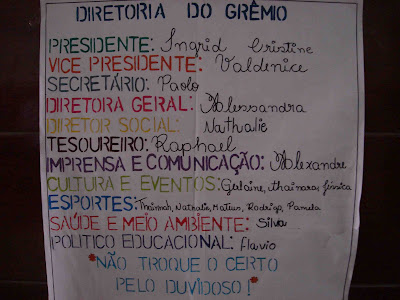 DIRETORIA DO GRÊMIO
PRESIDENTE: Ingrid Cristine
VICE PRESIDENTE: Valdenice
SECRETÁRIO: Paolo
DIRETORA GERAL: Alessandra
DIRETOR SOCIAL: Nathalie
TESOUREIRO: Raphael
IMPRENSA E COMUNICAÇÃO: Alexandre
CULTURA E EVENTOS: Thainara, Jéssica
ESPORTES: Nathalia, Mateus, Rodrigo, Pamela
SAÚDE E MEIO AMBIENTE: Silva
POLITICO EDUCACIONAL: Flavio
*NÃO TROQUE O CERTO
PELO DUVIDOSO!*